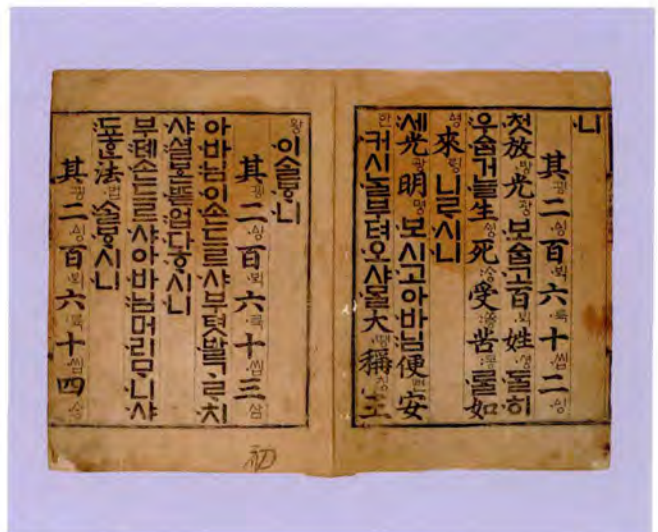 ·니
其끵二ᅀᅵᆼ百ᄇᆡᆨ六륙十씹二ᅀᅵᆼ
·첫放방光광 보ᅀᆞᆸ고百ᄇᆡᆨ姓셩 ᄃᆞᆯ히
우ᅀᅮᆷ거늘生ᄉᆡᆼ死ᄉᆞᆼ受쓩苦콩 ᄅᆞᆯ如
ᅀᅧᆼ來ᄅᆡᆼ 니ᄅᆞ시니
·세光광明명 보시고아바님便뼌安
ᅙᅡᆫ커시ᄂᆞᆯ부텨오샤ᄆᆞᆯ大땡稱칭王
왕 이ᄉᆞᆯᄫᆞ니
其끵二ᅀᅵᆼ百ᄇᆡᆨ六륙十씹三삼
아바님이손ᄃᆞᄅᆞ샤부텻발ᄀᆞᄅᆞ치
샤셜ᄫᅳᆫᄠᅳᆮ업다ᄒᆞ시니
부톄손ᄃᆞᄅᆞ샤아바님머리ᄆᆞ니샤
됴ᄒᆞᆫ法법 ᄉᆞᆯᄫᆞ시니
其끵二ᅀᅵᆼ百ᄇᆡᆨ六륙十씹四ᄉᆞᆼ
初